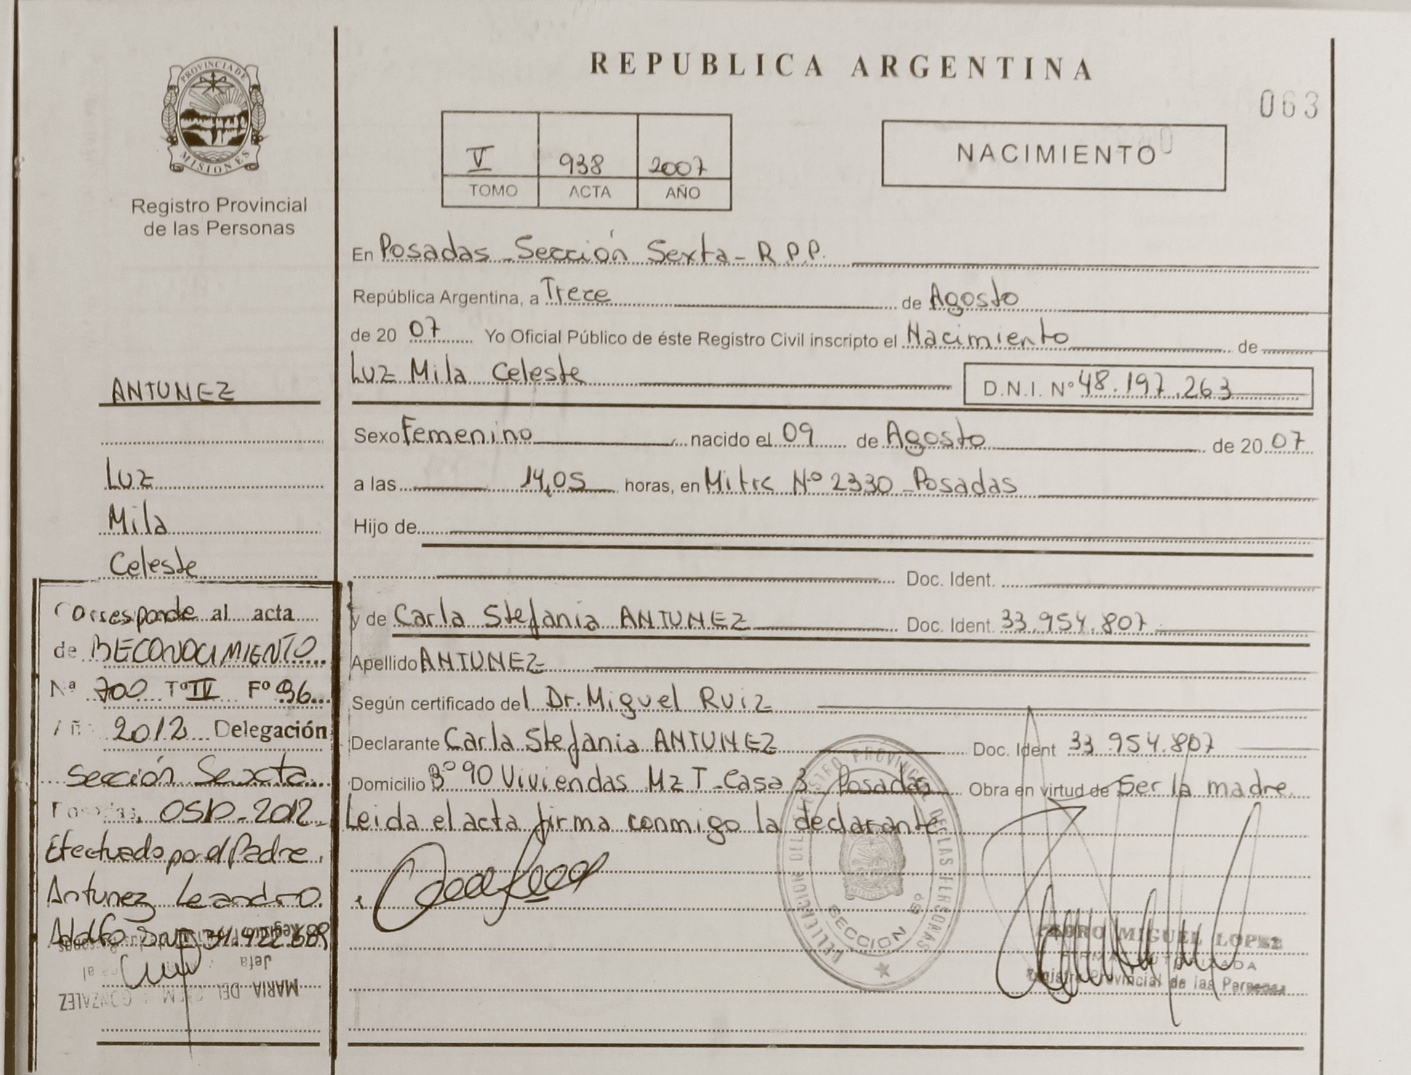 REPUBLICA ARGENTINA
063
PROVINCIA DE
MISIONES
Registro Provincial
de las Personas
V 938 2007
TOMO ACTA AÑO
NACIMIENTO
En Posadas - Sección Sexta - R.P.P.
República Argentina, a Trece de Agosto
de 20 07 Yo Oficial Público de éste Registro Civil inscripto el Nacimiento de
Luz Mila Celeste D.N.I. Nº 48.197.263
ANTUNEZ
Sexo Femenino nacido el 09 de Agosto de 20 07
Luz
a las 14,05 horas, en Mitre Nº 2330 - Posadas
Mila
Hijo de
Celeste
Doc. Ident.
y de Carla Stefania ANTUNEZ Doc. Ident. 33.954.807
Apellido ANTUNEZ
Según certificado del Dr. Miguel Ruiz
Declarante Carla Stefania ANTUNEZ Doc. Ident 33.954.807
Domicilio Bº 90 Viviendas Mz T - Casa 3 - Posadas Obra en virtud de Ser la madre
Leida el acta firma conmigo la declarante
Corresponde al acta
de RECONOCIMIENTO
Nª 700 Tº IV Fº 96
2012 Delegación
Sección Sexta
2012
Efectuado por el Padre
Antunez Leandro
Adolfo
Jefa
MARIA DEL GONZALEZ
SECCION 6º
PEDRO MIGUEL LOPEZ
FIRMA AUTORIZADA
Registro Provincial de las Personas